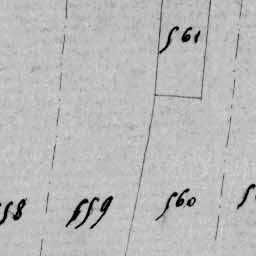 561
558 559 560